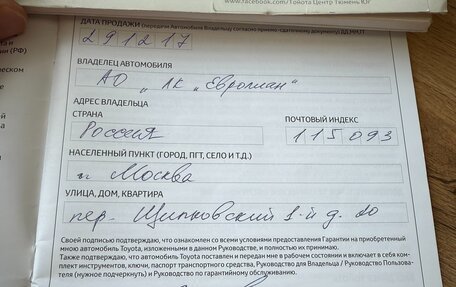 www.facebook.com/Тойота Центр Тюмень Юг
ДАТА ПРОДАЖИ (передачи Автомобиля Владельцу) согласно приемо-сдаточному документу) ДД.ММ.ГГ
291217
ВЛАДЕЛЕЦ АВТОМОБИЛЯ
АО „ЛК „Европлан“
АДРЕС ВЛАДЕЛЬЦА
СТРАНА
ПОЧТОВЫЙ ИНДЕКС
Россия
115093
НАСЕЛЕННЫЙ ПУНКТ (ГОРОД, ПГТ, СЕЛО И Т.Д.)
г. Москва
УЛИЦА, ДОМ, КВАРТИРА
пер. Щипковский 1-й д. 20
Своей подписью подтверждаю, что ознакомлен со всеми условиями предоставления Гарантии на приобретенный
мною автомобиль Toyota, изложенными в данном Руководстве, и полностью их принимаю.
Также подтверждаю, что автомобиль Toyota поставлен и передан мне в рабочем состоянии и включает в себя ком-
плект инструментов, ключи, паспорт транспортного средства, Руководство для Владельца / Руководство Пользова-
теля (нужное подчеркнуть) и Руководство по гарантийному обслуживанию.